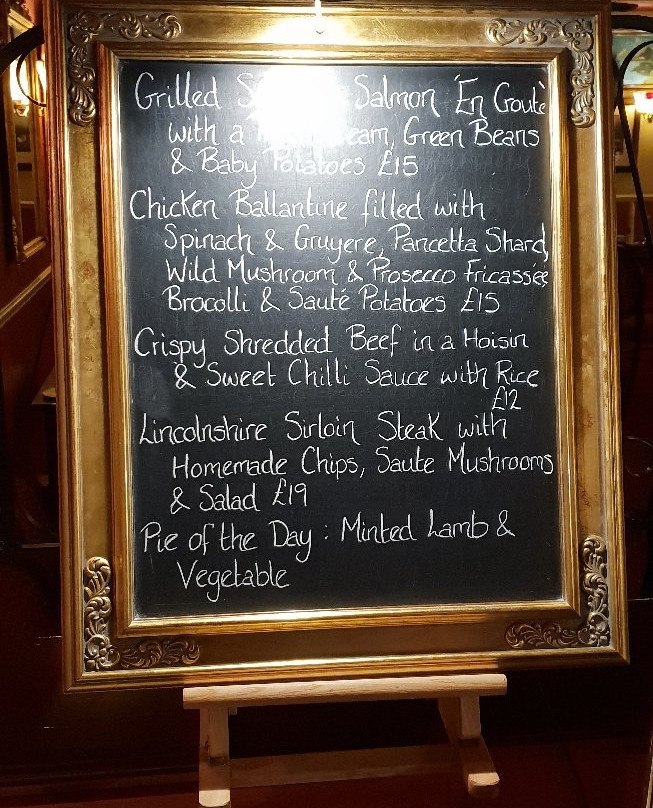 Grilled Salmon 'En Goute'
with a Green Beans
& Baby Potatoes £15
Chicken Ballantine filled with
Spinach & Gruyere, Pancetta Shard,
Wild Mushroom & Prosecco Fricassée
Brocolli & Sauté Potatoes £15
Crispy Shredded Beef in a Hoisin
& Sweet Chilli Sauce with Rice
£12
Lincolnshire Sirloin Steak with
Homemade Chips, Saute Mushrooms
& Salad £19
Pie of the Day : Minted Lamb &
Vegetable